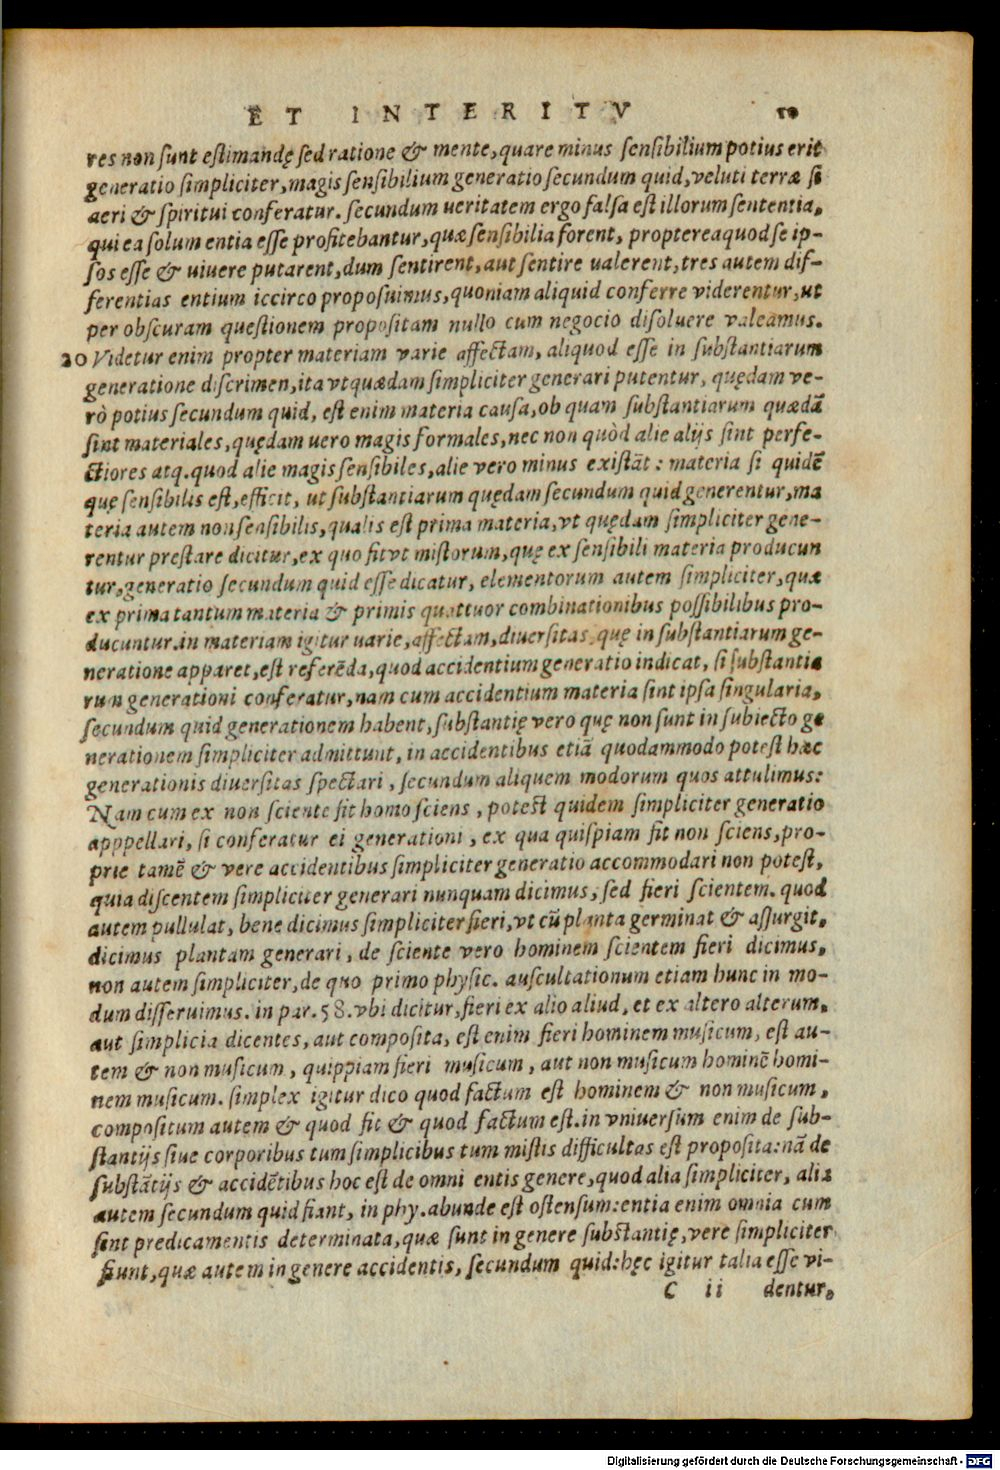 ET INTERITV 10
res non sunt estimandę sed ratione & mente, quare minus sensibilium potius erit
generatio simpliciter, magis sensibilium generatio secundum quid, veluti terræ si
aeri & spiritui conferatur. secundum ueritatem ergo falsa est illorum sententia,
qui ea solum entia esse profitebantur, quæ sensibilia forent, propterea quod se ip-
sos esse & uiuere putarent, dum sentirent, aut sentire ualerent, tres autem dif-
ferentias entium iccirco proposuimus, quoniam aliquid conferre viderentur, ut
per obscuram questionem propositam nullo cum negocio disoluere valeamus.
20 Videtur enim propter materiam varie affectam, aliquod esse in substantiarum
generatione discrimen, ita vt quædam simpliciter generari putentur, quędam ve-
rò potius secundum quid, est enim materia causa, ob quam substantiarum quædã
sint materiales, quędam uero magis formales, nec non quòd alie alijs sint perfe-
ctiores atq. quod alie magis sensibiles, alie vero minus existãt: materia si quidẽ
quę sensibilis est, efficit, ut substantiarum quędam secundum quid generentur, ma
teria autem non sensibilis, qualis est prima materia, vt quędam simpliciter gene-
rentur prestare dicitur, ex quo fit vt mistorum, quę ex sensibili materia producun
tur, generatio secundum quid esse dicatur, elementorum autem simpliciter, quæ
ex prima tantum materia & primis quattuor combinationibus possibilibus pro-
ducuntur. in materiam igitur uarie, affectam, diuersitas quę in substantiarum ge-
neratione apparet, est referẽda, quod accidentium generatio indicat, si substantia
rum generationi conferatur, nam cum accidentium materia sint ipsa singularia,
secundum quid generationem habent, substantię vero quę non sunt in subiecto ge
nerationem simpliciter admittunt, in accidentibus etiã quodammodo potest hæc
generationis diuersitas spectari, secundum aliquem modorum quos attulimus:
Nam cum ex non sciente fit homo sciens, potest quidem simpliciter generatio
apppellari, si conferatur ei generationi, ex qua quispiam fit non sciens, pro-
prie tamẽ & vere accidentibus simpliciter generatio accommodari non potest,
quia discentem simpliciter generari nunquam dicimus, sed fieri scientem. quod
autem pullulat, bene dicimus simpliciter fieri, vt cũ planta germinat & assurgit,
dicimus plantam generari, de sciente vero hominem scientem fieri dicimus,
non autem simpliciter, de quo primo physic. auscultationum etiam hunc in mo-
dum disseruimus. in par. 58. vbi dicitur, fieri ex alio aliud, et ex altero alterum,
aut simplicia dicentes, aut composita, est enim fieri hominem musicum, est au-
tem & non musicum, quippiam fieri musicum, aut non musicum hominẽ homi-
nem musicum. simplex igitur dico quod factum est hominem & non musicum,
compositum autem & quod fit & quod factum est. in vniuersum enim de sub-
stantijs siue corporibus tum simplicibus tum mistis difficultas est proposita: nã de
substãtijs & accidẽtibus hoc est de omni entis genere, quod alia simpliciter, alia
autem secundum quid fiant, in phy. abunde est ostensum: entia enim omnia cum
sint predicamentis determinata, quæ sunt in genere substantię, vere simpliciter
fiunt, quæ autem in genere accidentis, secundum quid: hęc igitur talia esse vi-
C ii dentur,
Digitalisierung gefördert durch die Deutsche Forschungsgemeinschaft - DFG